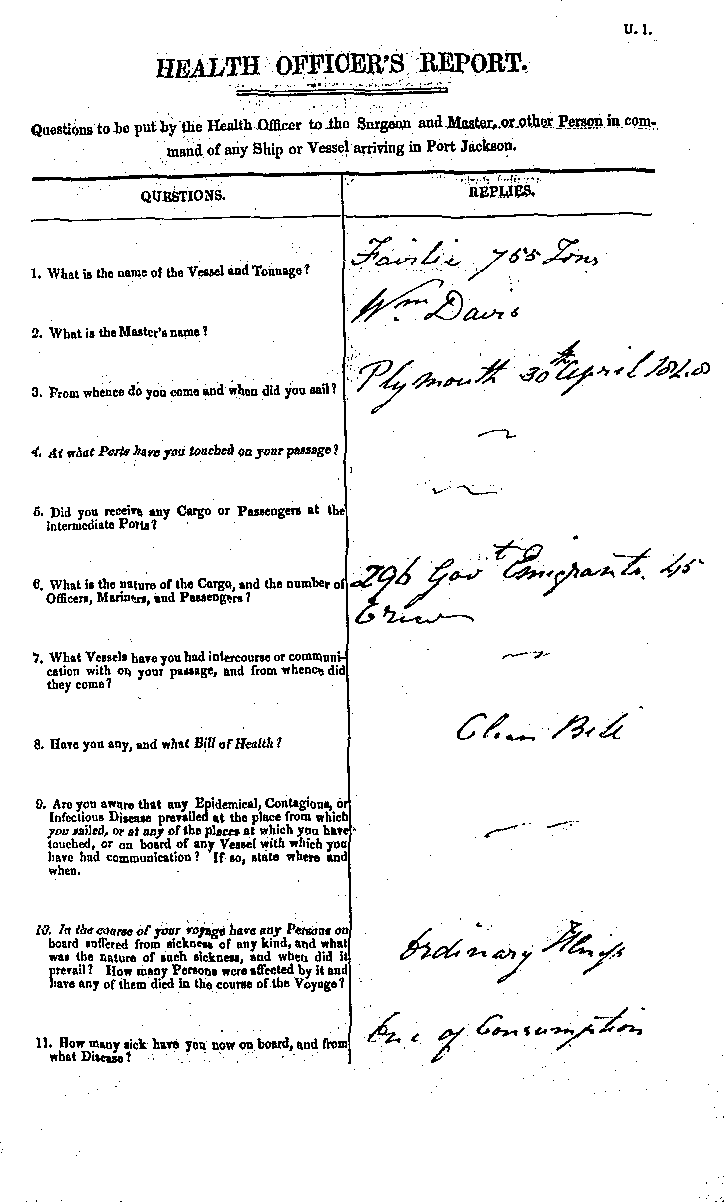 U. 1.
HEALTH OFFICER'S REPORT.
Questions to be put by the Health Officer to the Surgeon and Master, or other Person in com-
mand of any Ship or Vessel arriving in Port Jackson.
QUESTIONS.
REPLIES.
1. What is the name of the Vessel and Tonnage?
Fairlie 755 Tons
2. What is the Master's name?
Wm Davis
3. From whence do you come and when did you sail?
Plymouth 30th April 1848
4. At what Ports have you touched on your passage?
5. Did you receive any Cargo or Passengers at the
intermediate Ports?
6. What is the nature of the Cargo, and the number of
Officers, Mariners, and Passengers?
296 Govt Emigrants. 45
Crew
7. What Vessels have you had intercourse or communi-
cation with on your passage, and from whence did
they come?
8. Have you any, and what Bill of Health?
Clean Bill
9. Are you aware that any Epidemical, Contagious, or
Infectious Disease prevailed at the place from which
you sailed, or at any of the places at which you have
touched, or on board of any Vessel with which you
have had communication? If so, state where and
when.
10. In the course of your voyage have any Persons on
board suffered from sickness of any kind, and what
was the nature of such sickness, and when did it
prevail? How many Persons were affected by it and
have any of them died in the course of the Voyage?
Ordinary
11. How many sick have you now on board, and from
what Disease?
One of Consumption